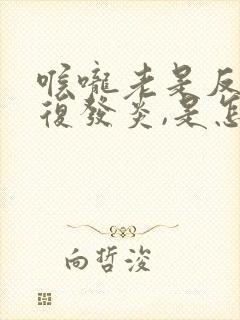 喉嚨老是反
復發炎,是怎
向哲浚